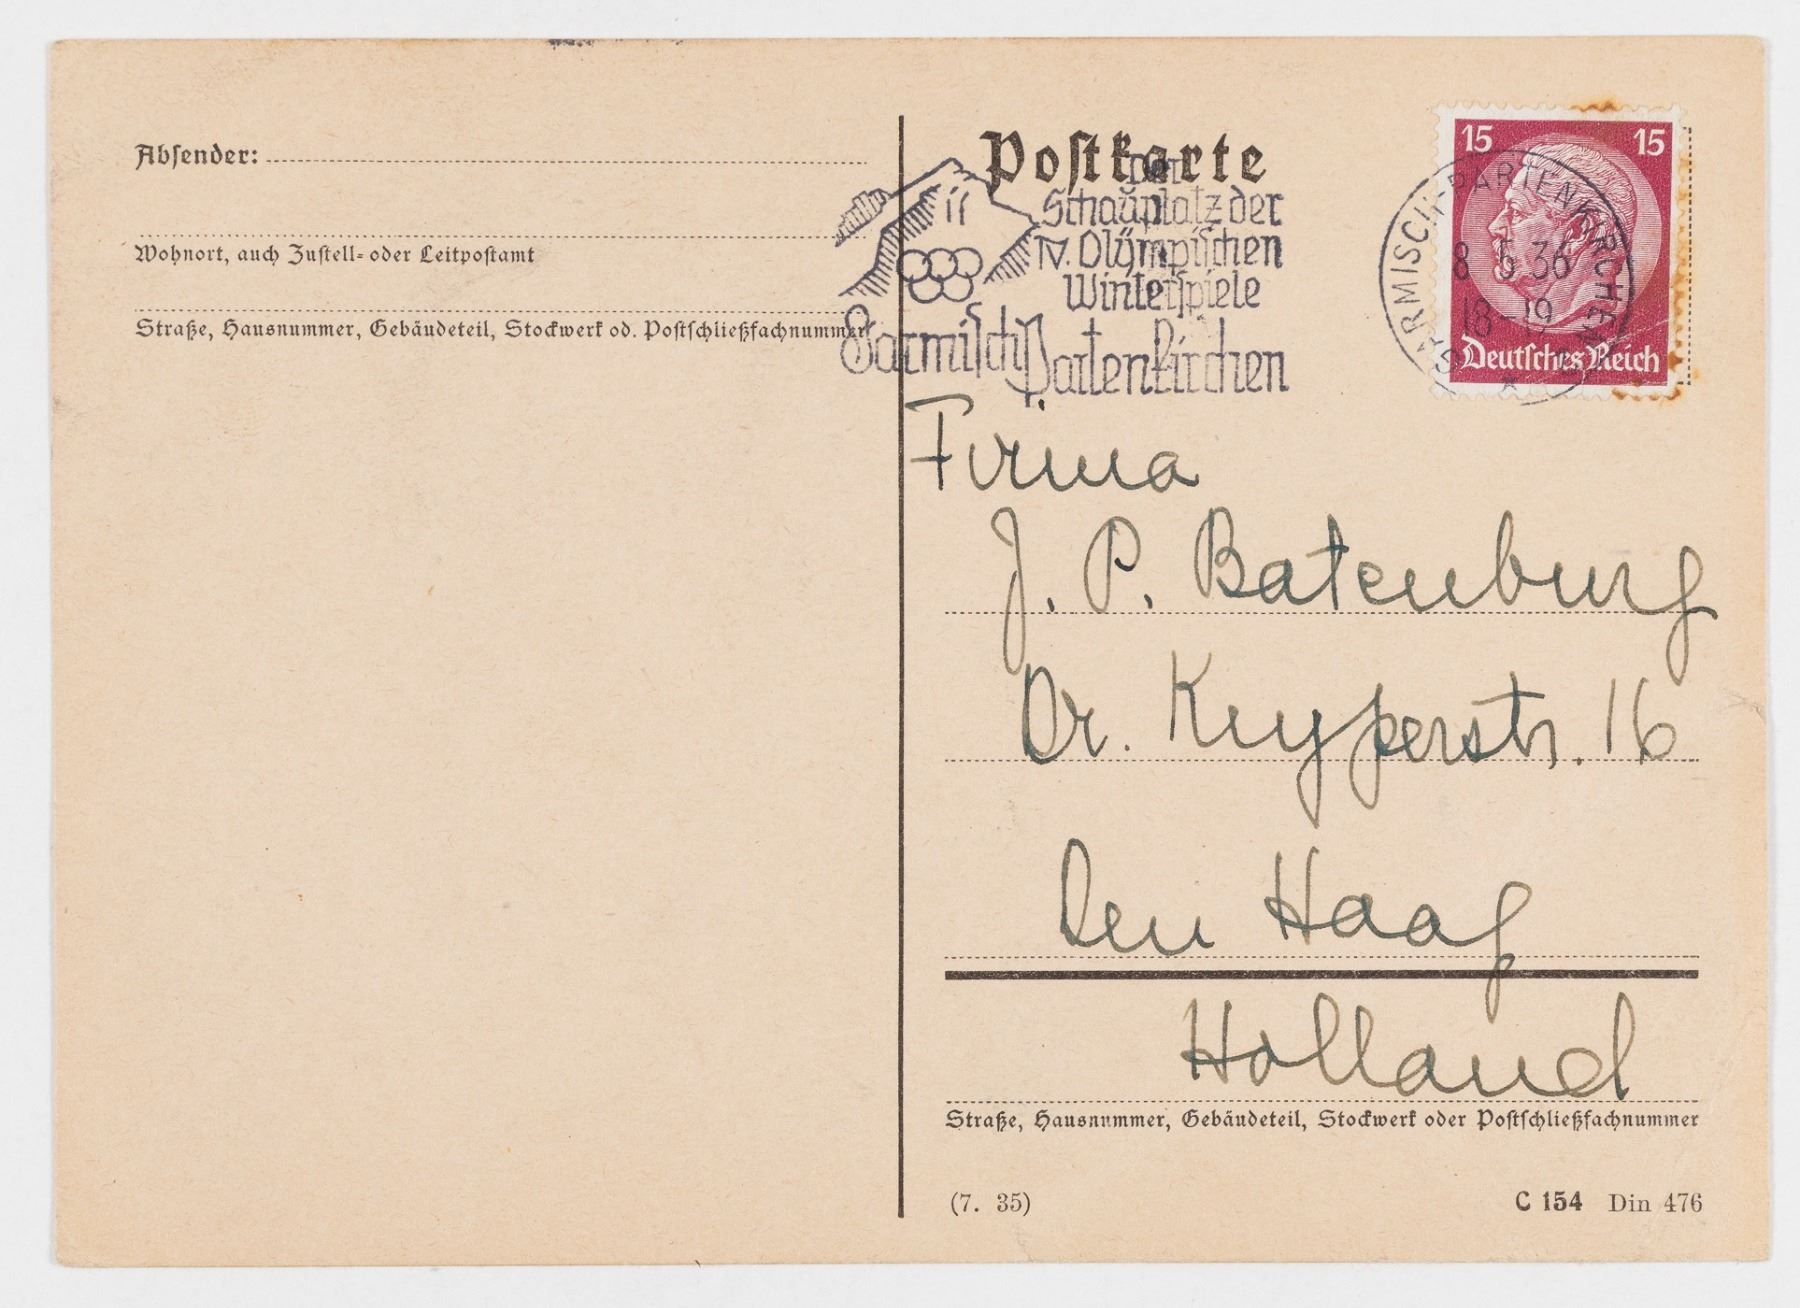 Absender:
Wohnort, auch Zustell- oder Leitpostamt
Straße, Hausnummer, Gebäudeteil, Stockwerk od. Postschließfachnummer
Postkarte
Der
Schauplatz der
IV. Olympischen
Winterspiele
Garmisch Partenkirchen
15 15
Deutsches Reich
GARMISCH-PARTENKIRCHEN
8 5 36
18-19
Firma
J. P. Batenburg
Dr. Kuyperstr. 16
Den Haag
Holland
Straße, Hausnummer, Gebäudeteil, Stockwerk oder Postschließfachnummer
(7. 35)
C 154 Din 476